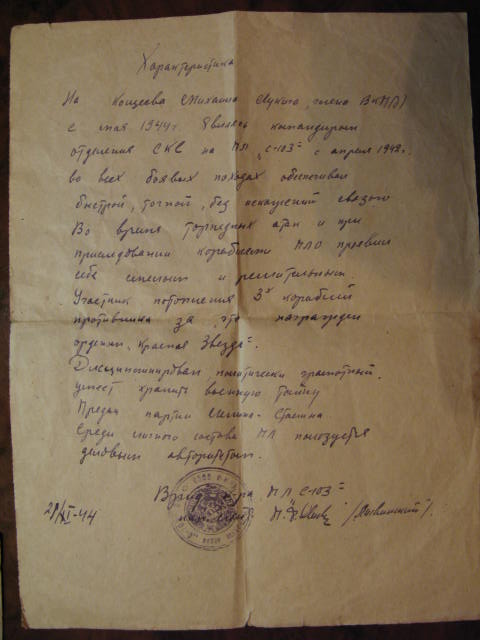 Характеристика
На Кощеева Михаила члена ВКП(б)
с мая 1944г. Являясь командиром
отделения СКС на ПЛ „С-103" с апреля 1942г.
во всех боевых походах обеспечивал
быстрой, точной, без искажений связью
Во время торпедных атак и при
приследовании кораблями ПЛО проявил
себя смелым и решительным.
Участник потопления 3х кораблей
противника за что награжден
орденом „Красная Звезда".
Дисциплинирован, политически грамотный.
умеет хранить военную тайну
Предан партии Ленина - Сталина.
Среди личного состава ПЛ пользуется
деловым авторитетом.
ПЛ С-103"
29/XI-44